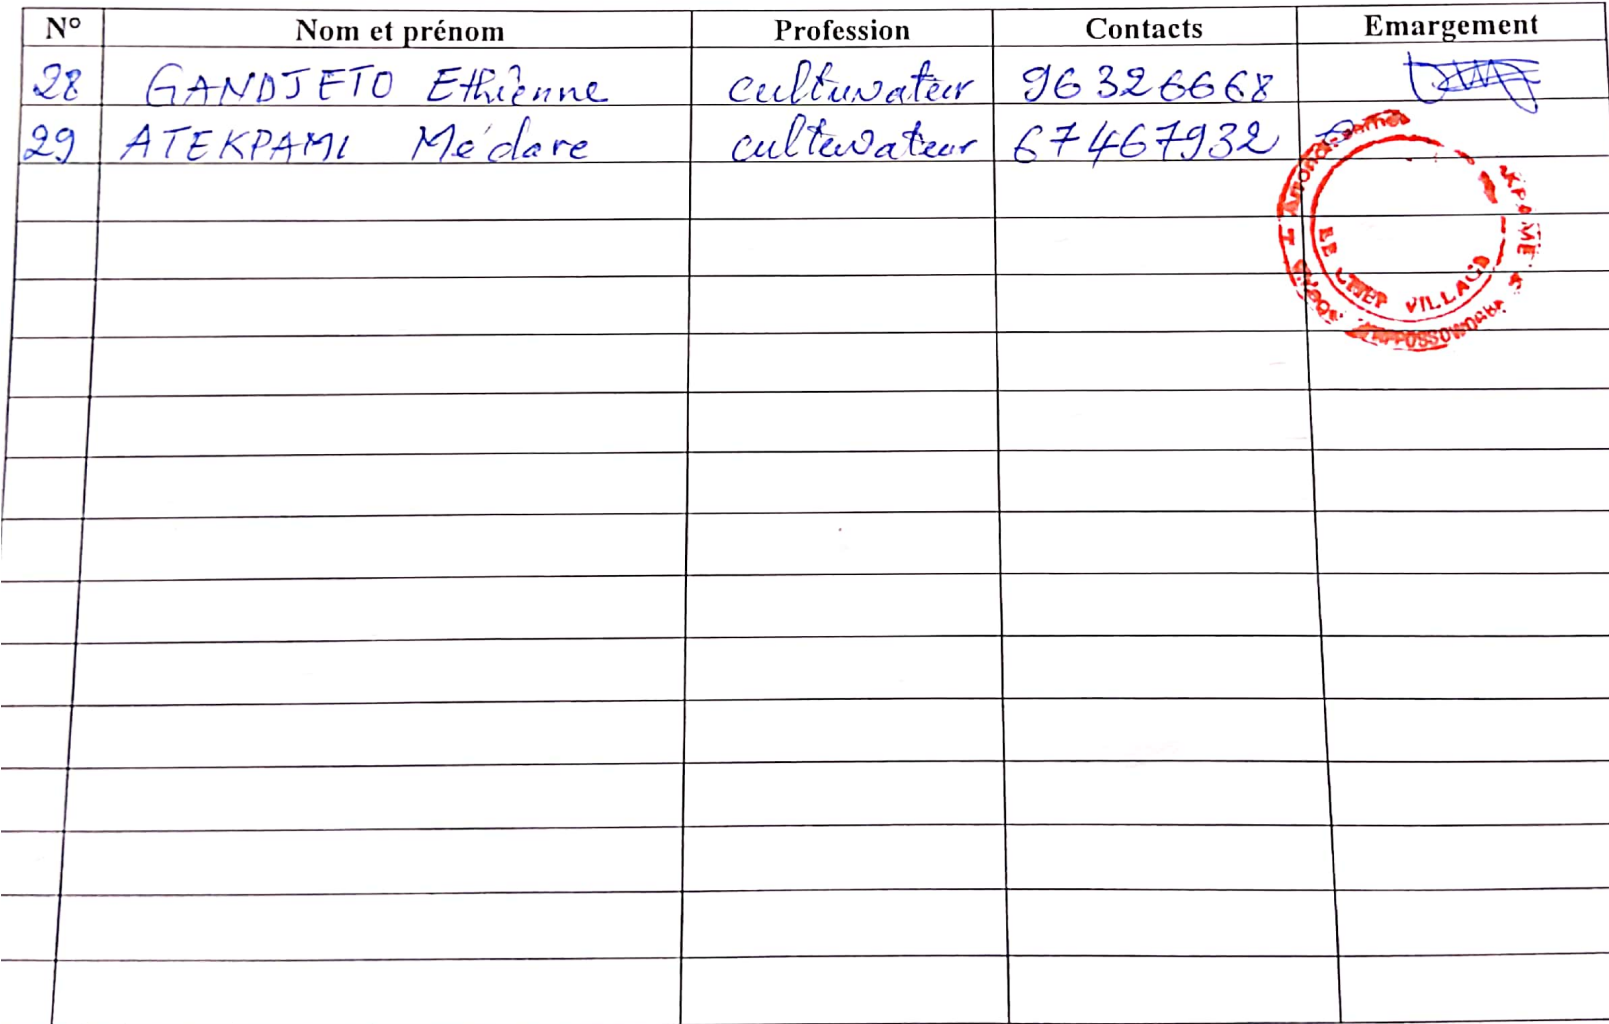 N° Nom et prénom Profession Contacts Emargement
28 GANDJETO Ethienne cultuvateur 96326668
29 ATEKPAMI Médare cultuvateur 67467932
LE CHEF VILLAGE